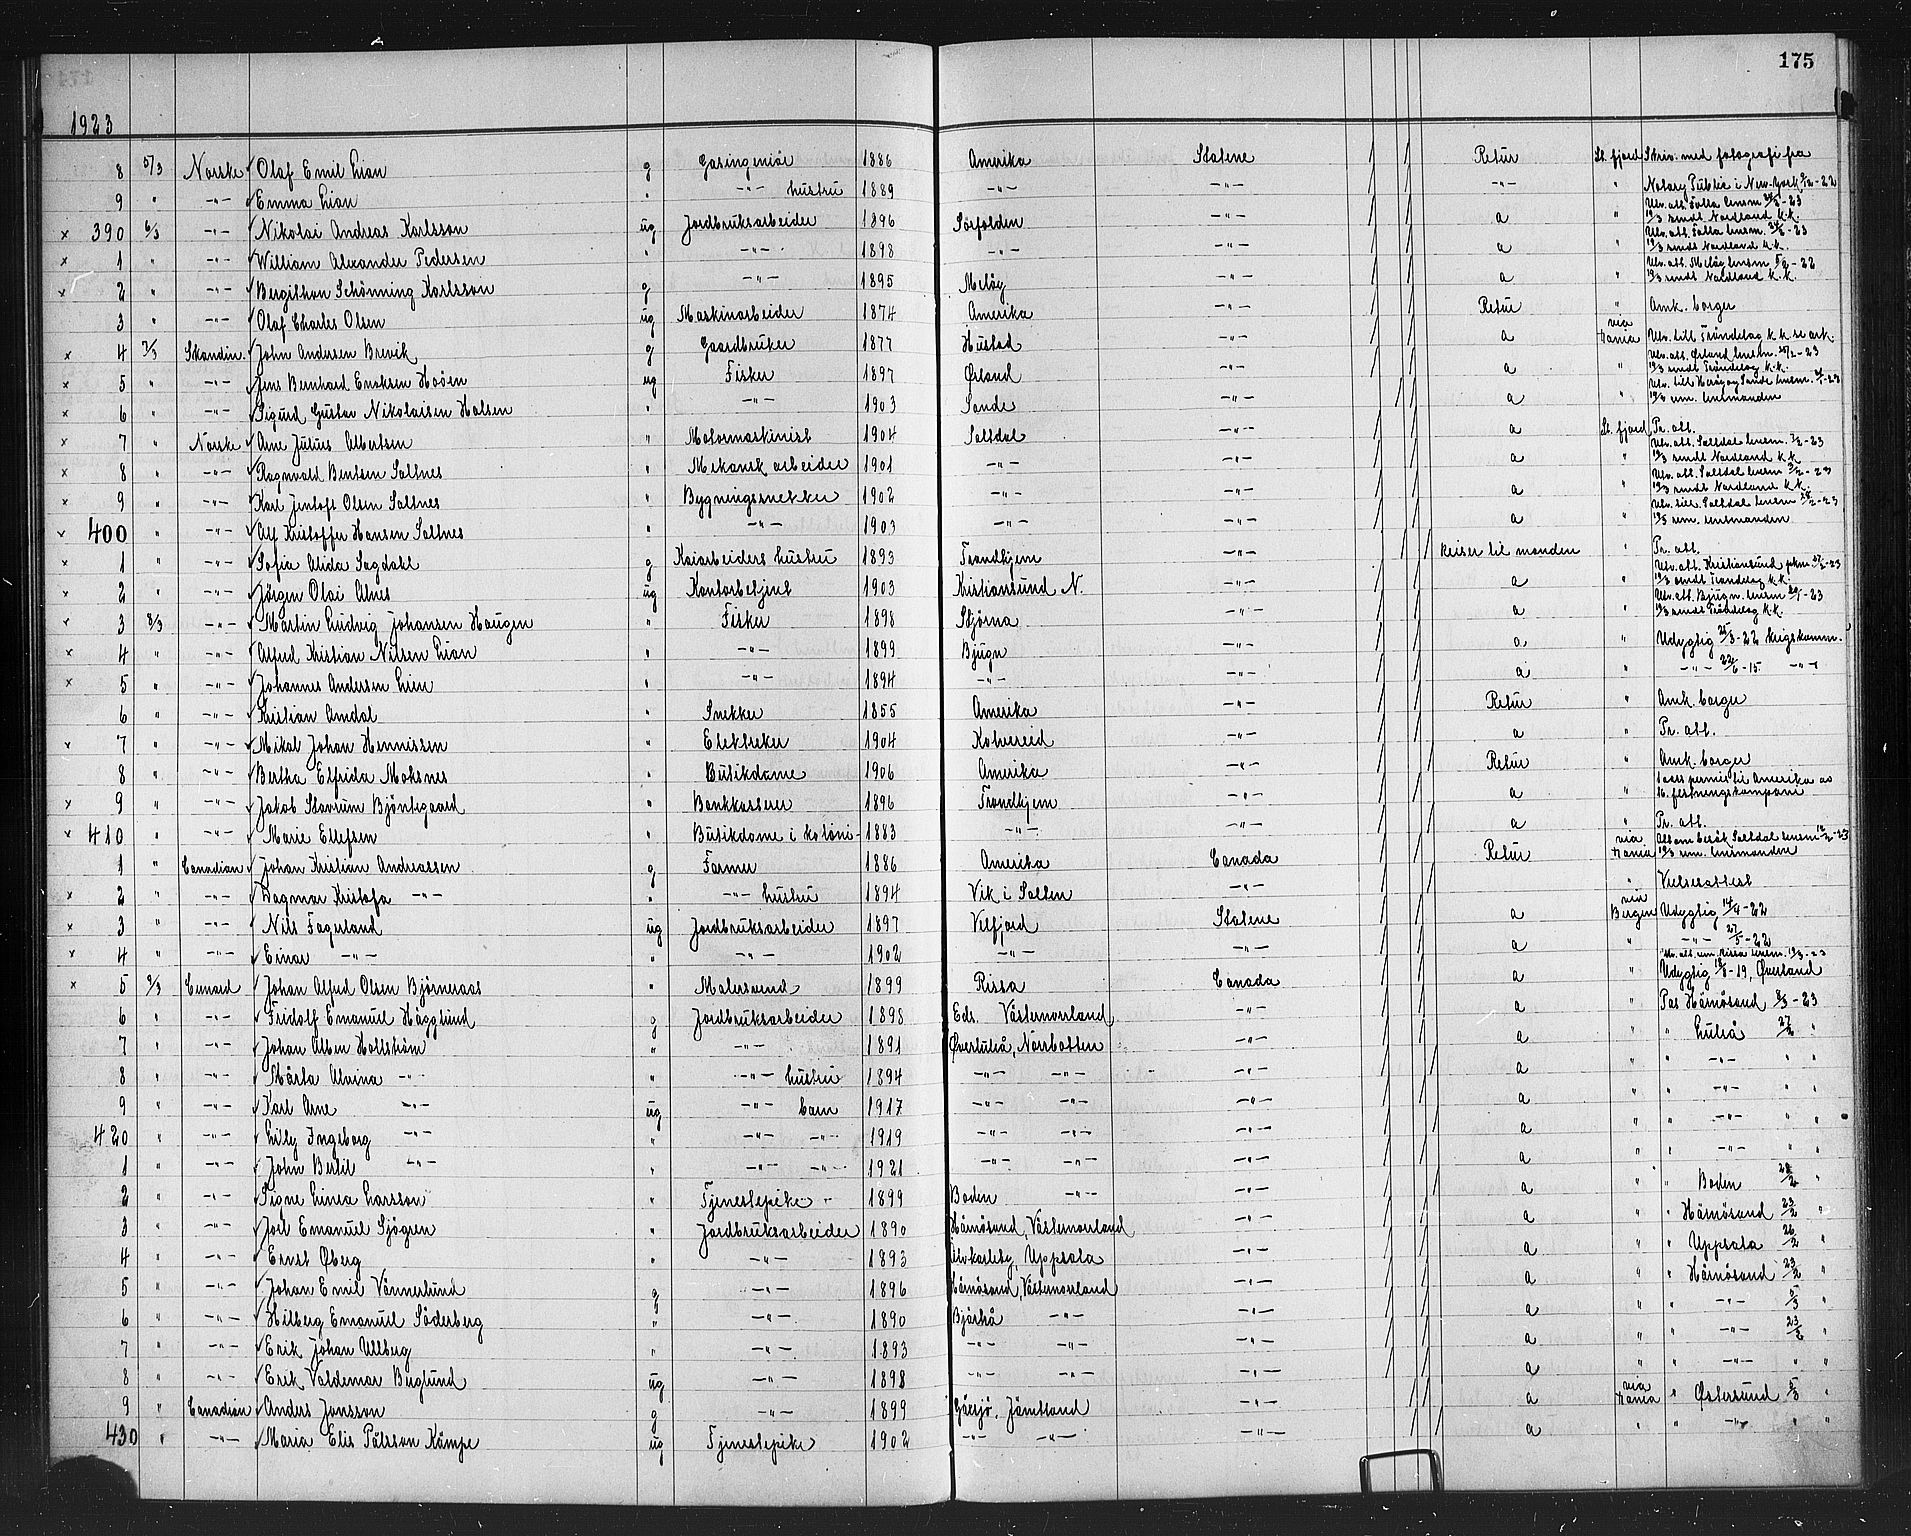 175
1923
8 5/3 Norske Olaf Emil Lian g Gasingeniör 1886 Amerika Statene Retur St. fjord Skriv. med fotografi fra
9 " -"- Emma Lian " -"- hustru 1889 -"- -"- -"- " Notary Public i New-York 9/12-22
x 390 6/3 -"- Nikolai Andreas Karlsson ug Jordbruksarbeider 1896 Sörfolden -"- a " 19/3 sendt Nordland k.k.
x 1 " -"- William Alexander Pedersen " -"- 1898 -"- -"- a " 19/3 sendt Nordland k.k.
x 2 " -"- Bergithon Schönning Karlsson g -"- 1895 Melöy -"- a " 19/3 sendt Nordland k.k.
3 " -"- Olaf Charles Olsen ug Maskinarbeider 1874 Amerika -"- Retur " Amk. borger
x 4 7/3 Skandin. John Andersen Brevik g Gaardbruker 1877 Hustad -"- a via Hania Utv. till Tröndelag k.k. se ark.
x 5 " -"- Jens Bernhard Eriksen Hoöen ug Fisker 1897 Ørland -"- a " 19/3 sendt Tröndelag k.k.
x 6 " -"- Sigurd Gustav Nikolaisen Halsen " -"- 1903 Sande -"- a " 19/3 um. lensmanden
x 7 " Norske Arne Julius Albertsen " Motormaskinist 1904 Saltdal -"- a St. fjord Pr. att.
x 8 " -"- Ragnvald Bentsen Saltnes " Mekanisk arbeider 1901 -"- -"- a " 19/3 sendt Nordland k.k.
x 9 " -"- Karl Jentoft Olsen Saltnes " Bygningssnekker 1902 -"- -"- a " 19/3 sendt Nordland k.k.
x 400 " -"- Alf Kristoffer Hansen Saltnes " -"- 1903 -"- -"- a " 19/3 um. lensmanden
x 1 " -"- Sofia Alida Sagdahl g Kaiarbeiders hustru 1893 Trondhjem -"- Reiser til manden " Pr. att.
x 2 " -"- Jörgen Olai Alnes ug Kontorbetjent 1903 Kristiansund N. -"- a " 19/3 sendt Tröndelag k.k.
x 3 8/3 -"- Martin Ludvig Johansen Haugen " Fisker 1898 Stjörna -"- a " 19/3 sendt Tröndelag k.k.
x 4 " -"- Alfred Kristian Nilsen Lian " -"- 1899 Bjugn -"- a " Udygtig 25/3-22 krigskomm.
x 5 " -"- Johannes Andersen Lien " -"- 1894 -"- -"- a " -"- 22/6-15 -"-
6 " -"- Kristian Amdal " Snekker 1855 Amerika -"- Retur " Amk. borger
x 7 " -"- Mikal Johan Hennissen " Elektriker 1904 Kolvereid -"- a " Pr. att.
8 " -"- Bertha Elfrida Moksnes " Butikdame 1906 Amerika -"- Retur " Amk. borger
x 9 " -"- Jakob Stavrum Bjöntegaard " Bankkasserer 1896 Trondhjem -"- a " 1 aars permis til Amerika av 16. festningskompani
x 410 " -"- Marie Ellefsen " Butikdame i koloni- 1883 -"- -"- a " Pr. att.
1 " Canadian Johan Kristian Andreassen g Farmer 1886 Amerika Canada Retur via Hania 19/3 um. lensmanden
x 2 " -"- Dagmar Kristofa -"- " -"- hustru 1894 Vik i Salten -"- " Vielseattest
x 3 " -"- Nils Fagerland ug Jordbruksarbeider 1897 Velfjord Statene a via Bergen Udygtig 14/4-22
x 4 " -"- Einar -"- " -"- 1902 -"- -"- a " -"- 27/5-22
x 5 9/3 Cunard Johan Alfred Olsen Björneraas " Malersvend 1899 Rissa Canada a " Udygtig 19/8-19, Øverland
6 " -"- Fridolf Emanuel Hägglund g Jordbruksarbeider 1898 Eds. Västernorrland -"- a " Pas Härnösand 8/3-23
7 " -"- Johan Alben Hallström " -"- 1891 Øverluleå, Norrbotten -"- a " " Luleå 27/2 "
8 " -"- Märta Alvina -"- " -"- hustru 1894 -"- -"- -"- a " " -"- " "
9 " -"- Karl Arne -"- ug -"- barn 1917 -"- -"- -"- a " " -"- " "
420 " -"- Lilly Ingeborg -"- " -"- -"- 1919 -"- -"- -"- a " " -"- " "
1 " -"- John Bertil -"- " -"- -"- 1921 -"- -"- -"- a " " -"- " "
2 " -"- Signe Linea Larsson " Tjenestepike 1899 Boden -"- -"- a " " Boden 28/2 "
3 " -"- Joel Emanuel Sjögren " Jordbruksarbeider 1890 Härnösand, Västernorrland -"- a " " Härnösand 23/2 "
4 " -"- Ernst Øberg " -"- 1893 Älvkarleby, Uppsala -"- a " " Uppsala 26/2 "
5 " -"- Johan Emil Vännerlund g -"- 1896 Härnösand, Västernorrland -"- a " " Härnösand 23/2 "
6 " -"- Hilberg Emanuel Söderberg " -"- 1890 Bjärtrå -"- -"- a " " -"- 5/3 "
7 " -"- Erik Johan Ullberg " -"- 1893 -"- -"- -"- a " " -"- 23/2 "
8 " -"- Erik Valdemar Berglund ug -"- 1898 -"- -"- -"- a " " -"- " "
9 " Canadian Anders Jonsson g -"- 1899 Gåxsjö, Jämtland -"- a via Hania " Østersund 5/3 "
430 " -"- Maria Elis Pålsson Kämpe ug Tjenestepike 1902 -"- -"- -"- a " " -"- " "